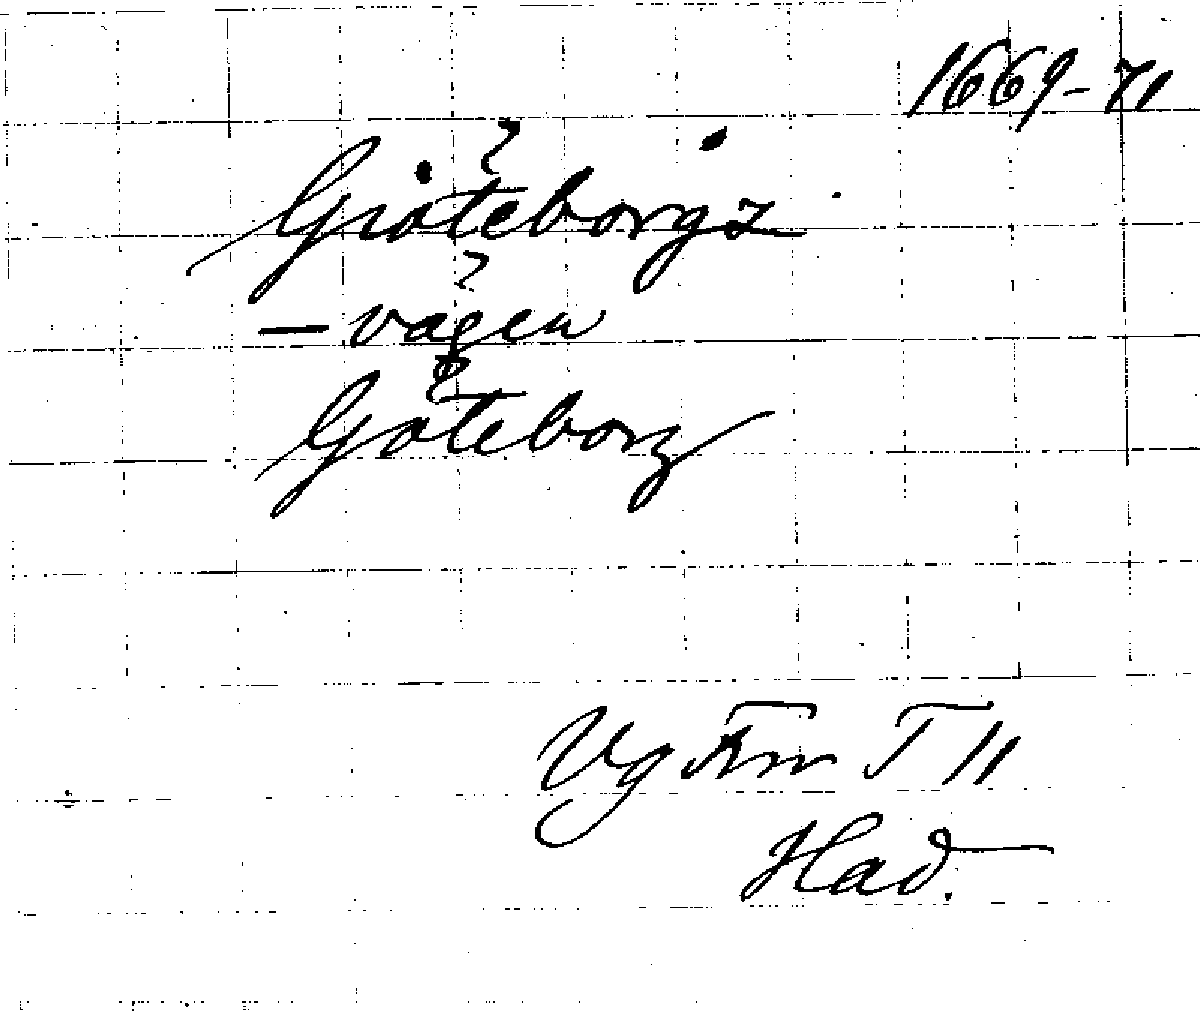 1669-71
Giöteborgz
- vägen
Göteborg
Vg Fnm T 11
Had.